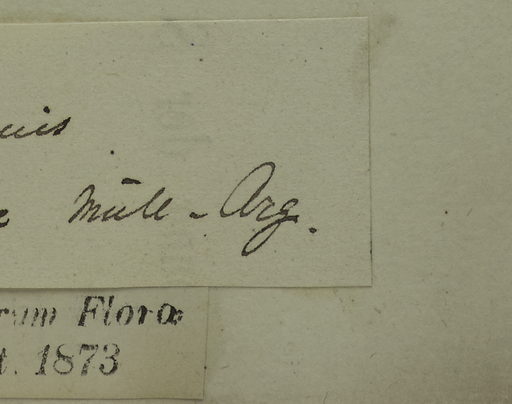 Müll-Arg.
rum Floræ
t. 1873